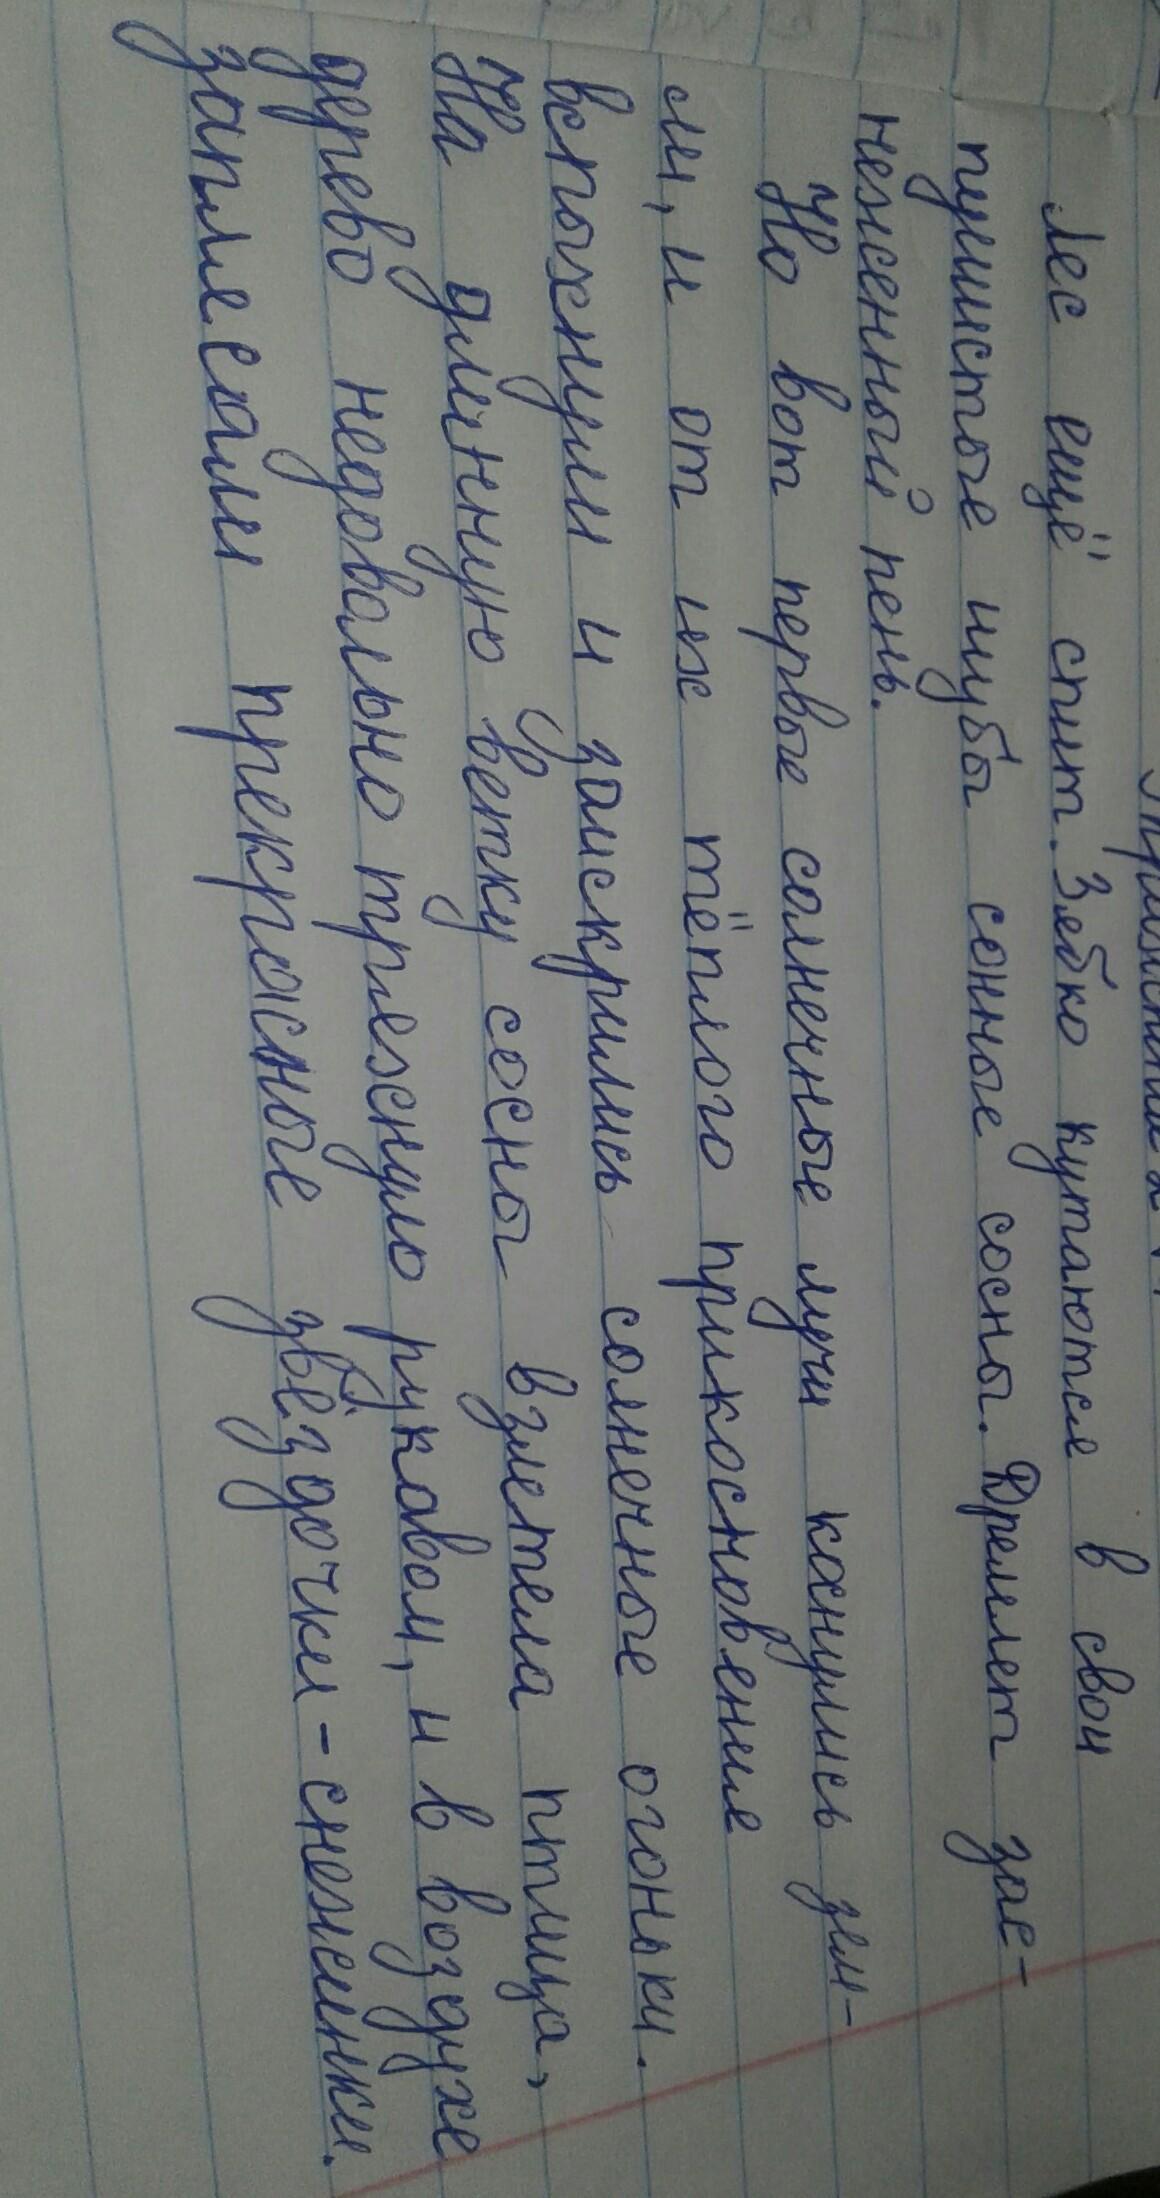 Лес ещё спит. Зябко кутаются в свои
пушистые шубы сонные сосны. Дремлет зас-
неженный пень.
Но вот первые солнечные лучи коснулись зем-
ли, и от их тёплого прикосновение
вспыхнули и заискрились солнечные огоньки.
На длинную ветку сосны взлетела птица,
дерево недовольно тряхнуло рукавом, и в воздухе
заплесали прекрасные звёздочки-снежинки.